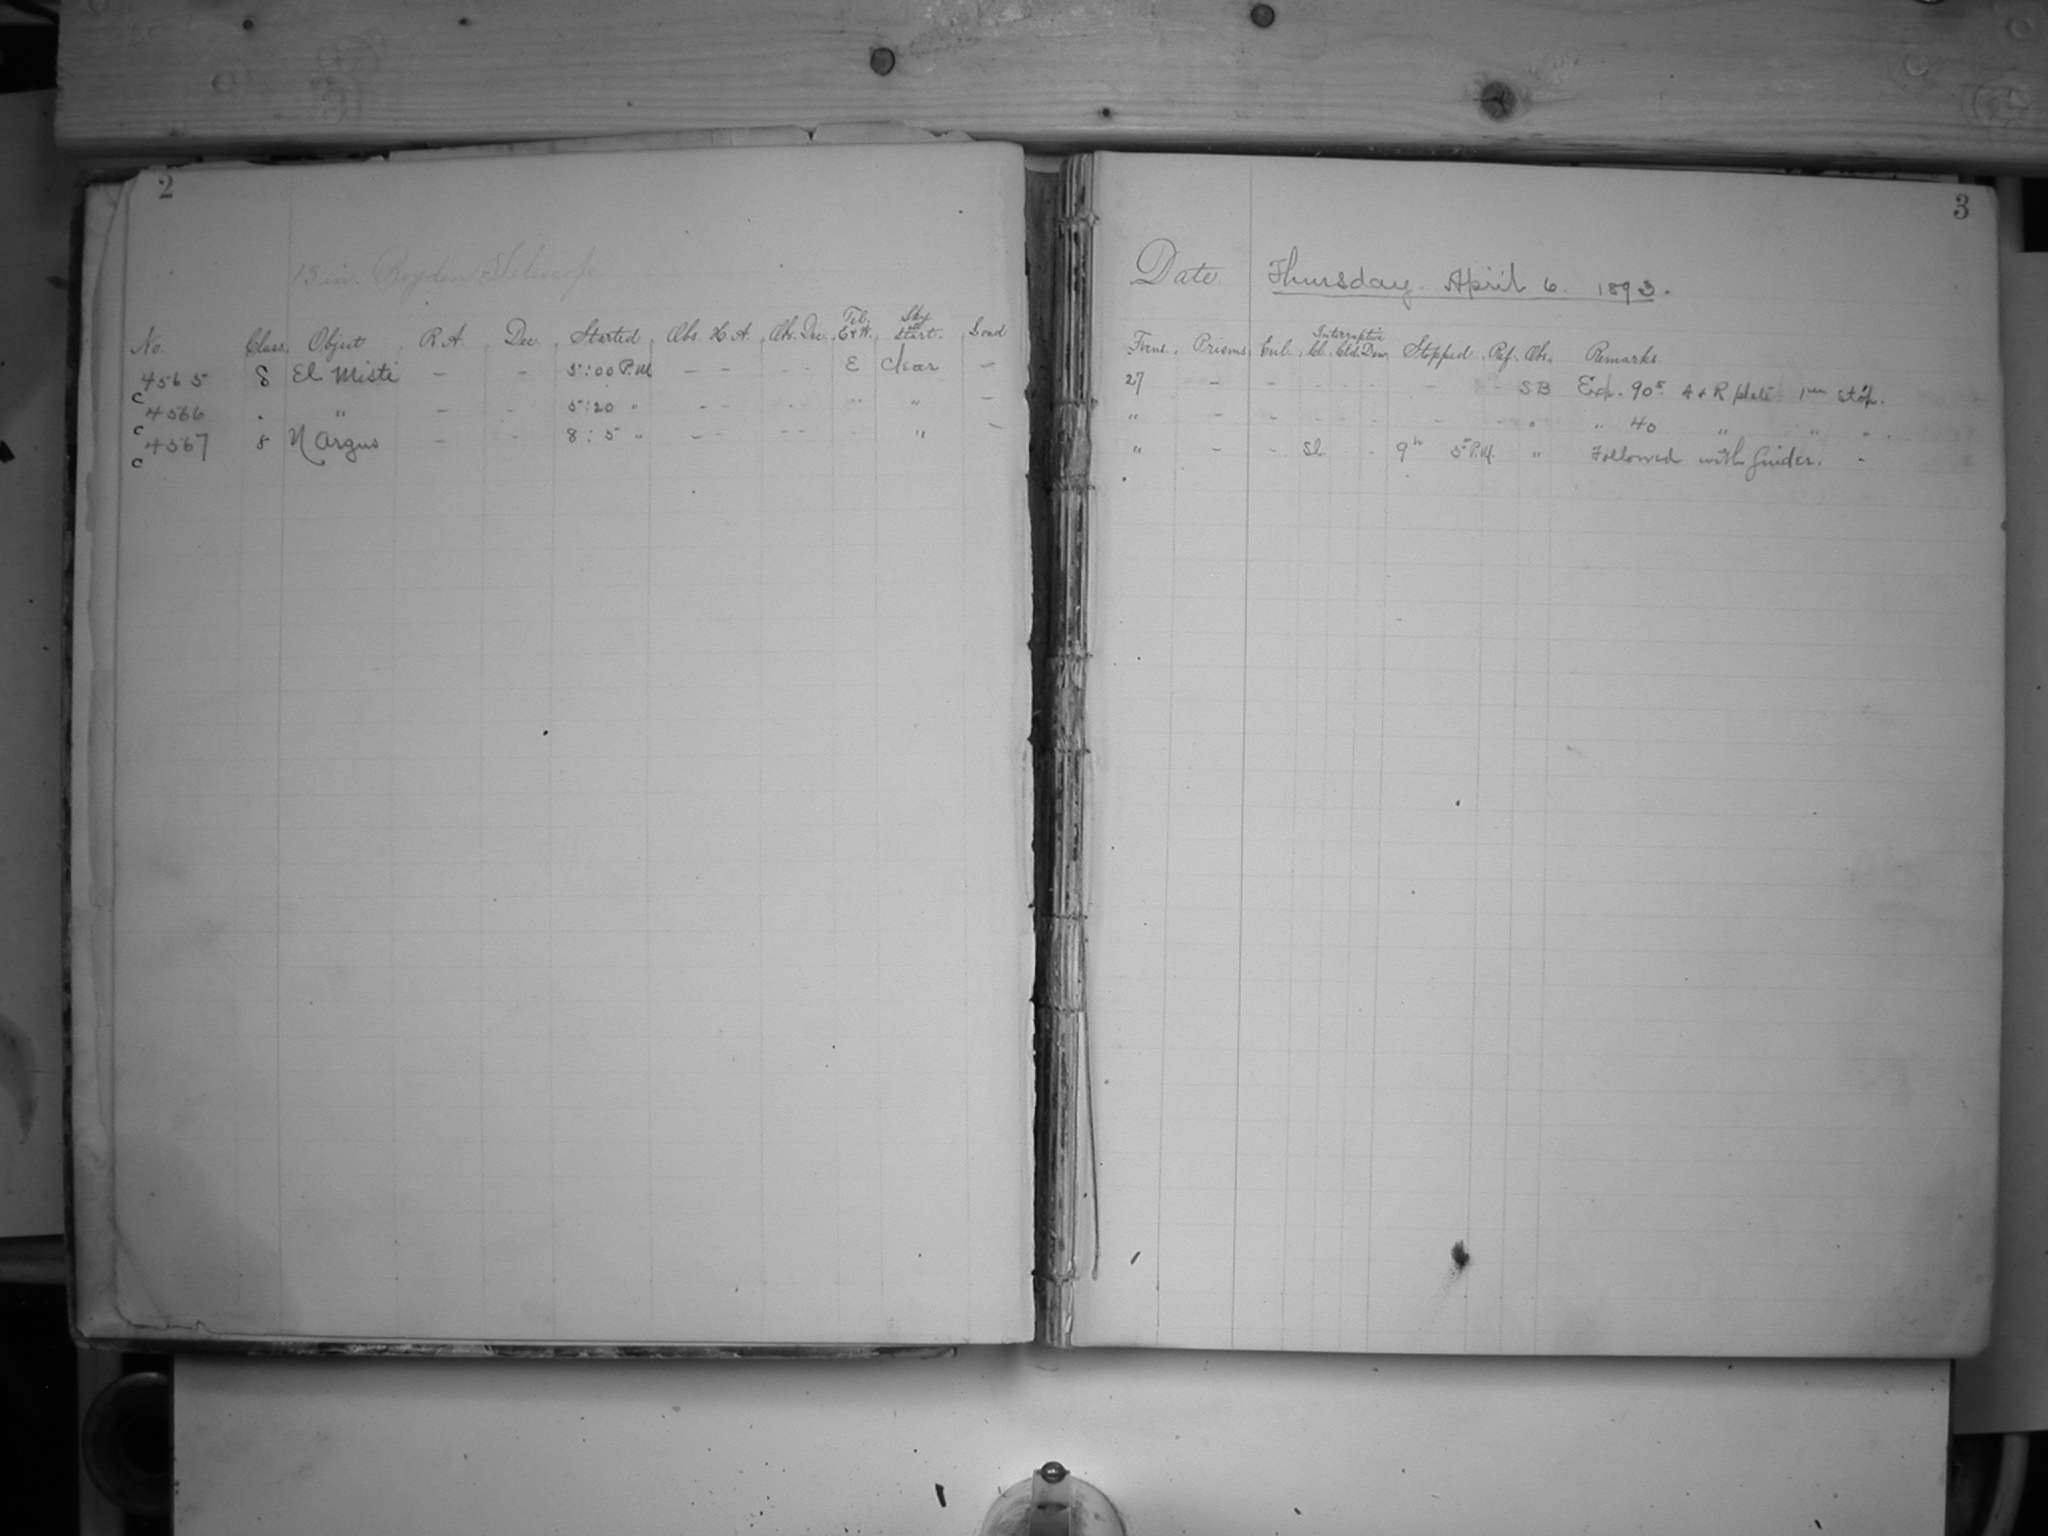 2
13 in. Boyden Telescope
No. Class Object R.A. Dec. Started Obs. H.A. Ob. Dec. Tel. E & W. Sky at Start.
4565 8 El Misti – – 5:00 P.M – – – – E Clear –
C
4566 . " – – 5:20 " – – – – " " –
C
4567 8 η Argus – – 8:5 " – – – – – " –
C
3
Date. Thursday. April 6. 1893.
Focus. Prisms Enl. Interruptive Cl. Cld. Dew. Stopped Ref. Ob. Remarks
27 – – - - - - - SB Exp. 90s A & R plate 1 in stop.
" – – - - - - - " " 40 " " " .
" – – Sl - - 9h 5 P.M. " Followed with Guider. -